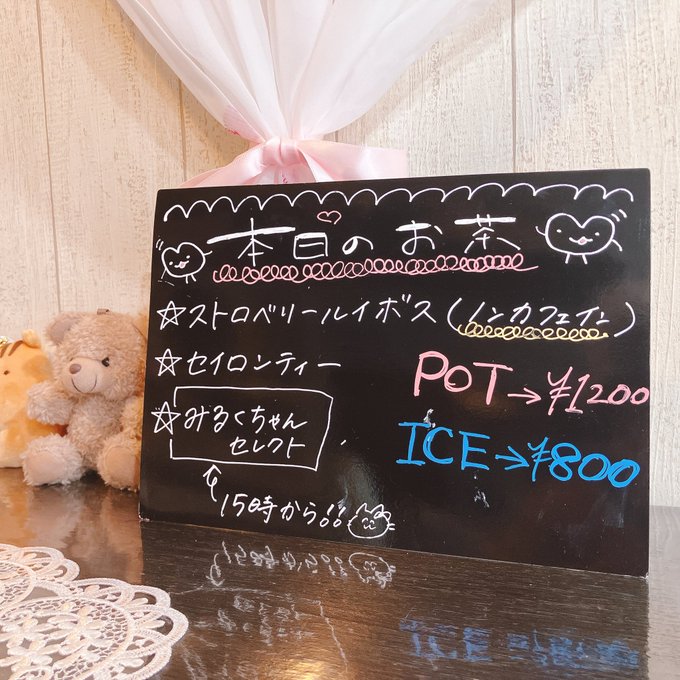 本日のお茶
☆ストロベリールイボス(ノンカフェイン)
☆セイロンティー
☆みるくちゃん
セレクト
15時から!!
POT→¥1200
ICE→¥800